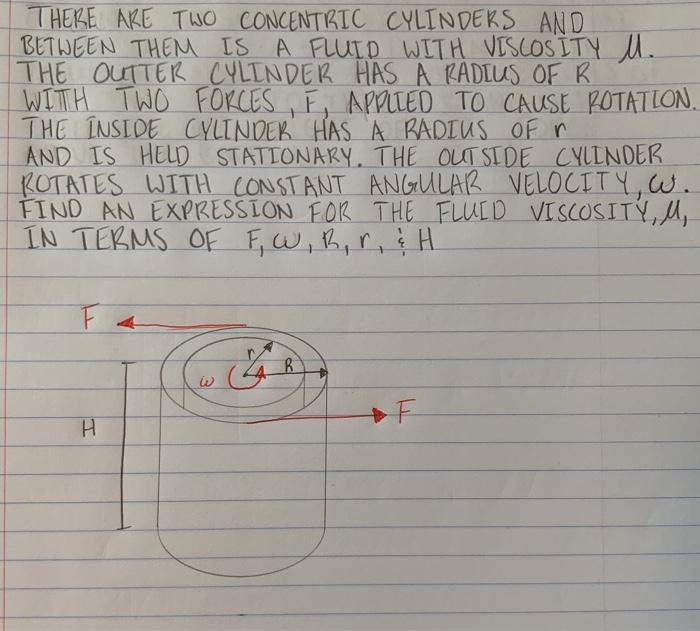 THERE ARE TWO CONCENTRIC CYLINDERS AND
BETWEEN THEM IS A FLUID WITH VISCOSITY μ.
THE OUTTER CYLINDER HAS A RADIUS OF R
WITH TWO FORCES, F, APPLIED TO CAUSE ROTATION.
THE INSIDE CYLINDER HAS A RADIUS OF r
AND IS HELD STATIONARY. THE OUTSIDE CYLINDER
ROTATES WITH CONSTANT ANGULAR VELOCITY, ω.
FIND AN EXPRESSION FOR THE FLUID VISCOSITY, μ,
IN TERMS OF F, ω, R, r, & H
F
r
R
ω
F
H